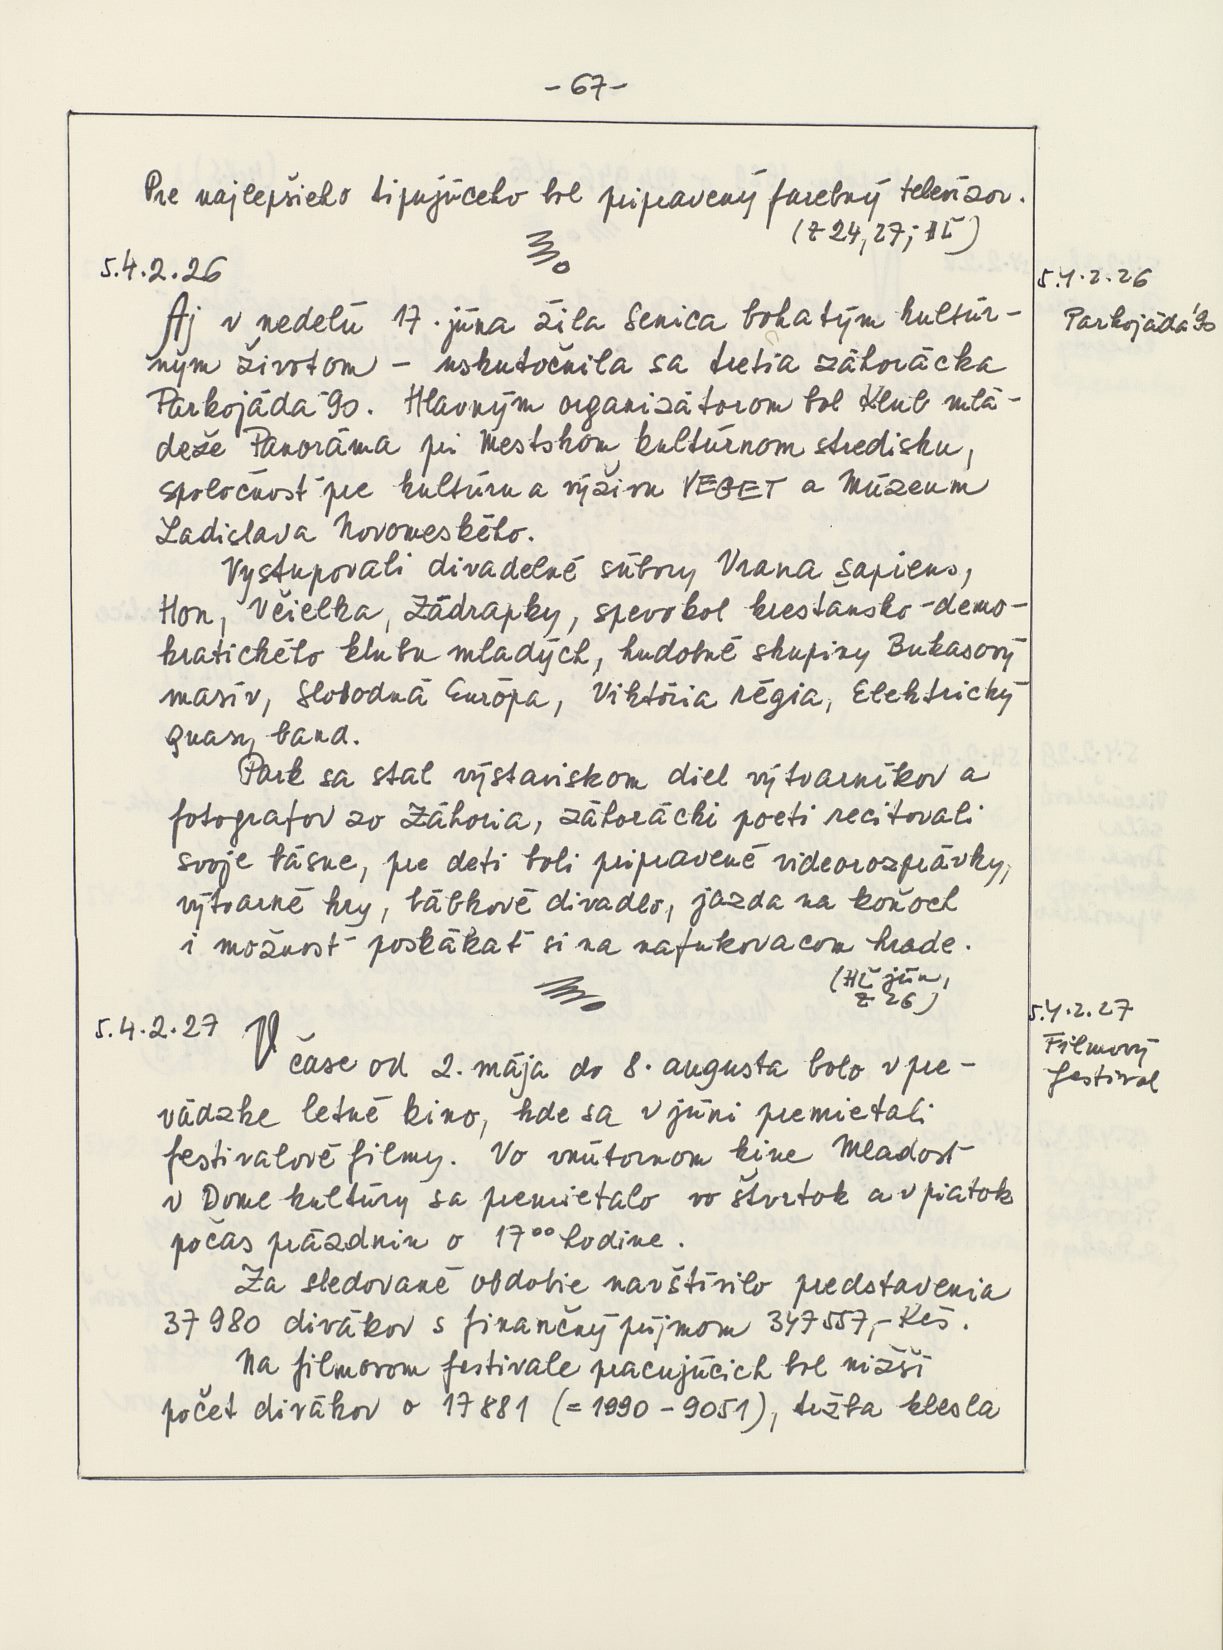 - 67 -
Pre najlepšieho tipujúceho bol pripravený farebný televízor.
(Z 24, 27; HĽ)
5.4.2.26
5.4.2.26
Parkojáda '90
Aj v nedeľu 17. júna žila Senica bohatým kultúr-
nym životom - uskutočnila sa tretia záhorácka
Parkojáda '90. Hlavným organizátorom bol Klub mlá-
deže Panoráma pri Mestskom kultúrnom stredisku,
spoločnosť pre kultúru a výživu VEGET a Múzeum
Ladislava Novomeského.
Vystupovali divadelné súbory Vrana sapiens,
Hon, Včielka, Zádrapky, spevokol kresťansko-demo-
kratického klubu mladých, hudobné skupiny Bukasový
masív, Slobodná Európa, Viktória régia, Elektrický
quasy band.
Park sa stal výstaviskom diel výtvarníkov a
fotografov zo Záhoria, záhorácki poeti recitovali
svoje básne, pre deti boli pripravené videorozprávky,
výtvarné hry, bábkové divadlo, jazda na koňoch
i možnosť poskákať si na nafukovacom hrade.
(HĽ jún,
Z 26)
5.4.2.27
5.4.2.27
Filmový
festival
V čase od 2. mája do 8. augusta bolo v pre-
vádzke letné kino, kde sa v júni premietali
festivalové filmy. Vo vnútornom kine Mladosť
v Dome kultúry sa premietalo vo štvrtok a v piatok
počas prázdnin o 17⁰⁰ hodine.
Za sledované obdobie navštívilo predstavenia
37 980 divákov s finančný príjmom 347 557,- Kčs.
Na filmovom festivale pracujúcich bol nižší
počet divákov o 17 881 (= 1990 - 9051), tržba klesla